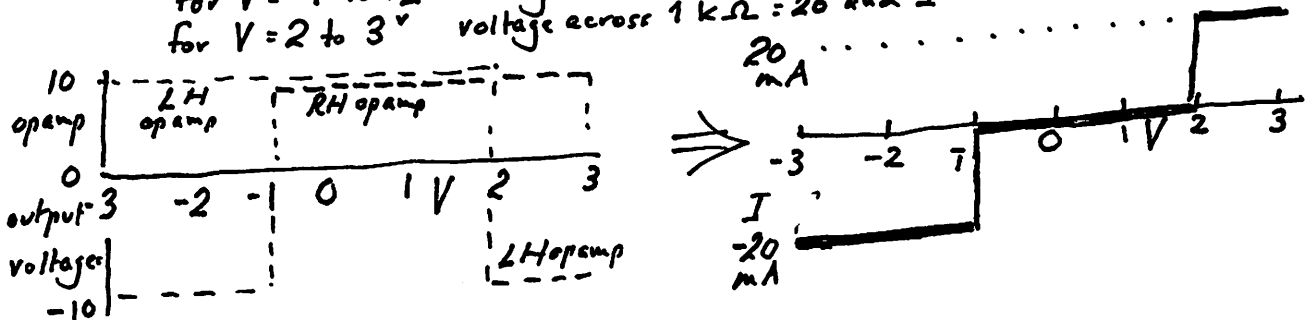 for V = 2 to 3ᵛ voltage across 1 kΩ = 20 and I
10
opamp
0
output
voltages
-10
LH
opamp
RH opamp
LH opamp
-3 -2 -1 0 1 V 2 3
20
mA
-3 -2 -1 0 1 V 2 3
I
-20
mA